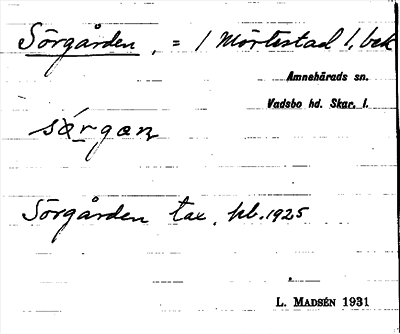 Sörgården, = 1 Mörtestad 1, bek
Amnehärads sn.
Vadsbo hd. Skar. l.
sǿrgan
Sörgården tax. hb. 1925
L. MADSÉN 1931